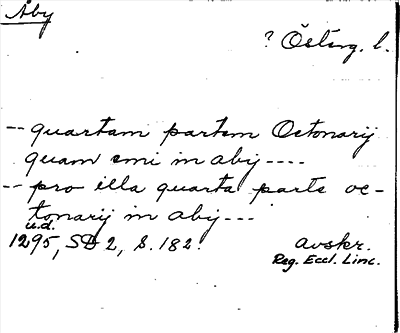 Åby
? Österg. l.
-- quartam partem Octonarij
quam emi in abij ----
-- pro illa quarta parte oc-
tonarij in abij ---
u.d.
1295, SD 2, S. 182. avskr.
Reg. Eccl. Linc.